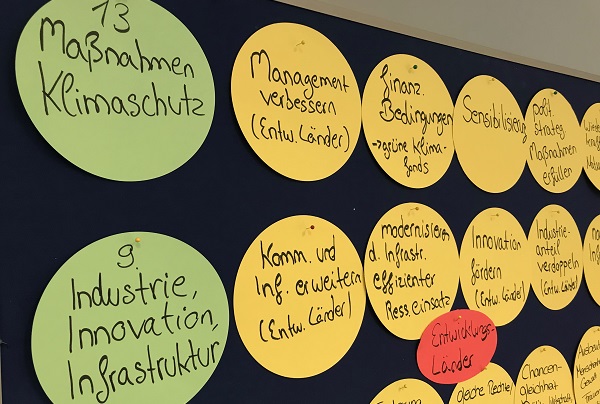 13
Maßnahmen
Klimaschutz
Management
verbessern
(Entw. Länder)
finanz.
Bedingungen
→ grüne Klima-
fonds
Sensibilisierung
polit.
strateg.
Maßnahmen
erfüllen
9
Industrie,
Innovation,
Infrastruktur
Komm. und
Inf. erweitern
(Entw. Länder)
modernisieren
d. Infrastr.
effizienter
Ress.einsatz
Innovation
fördern
(Entw. Länder)
Industrie-
anteil
verdoppeln
(Entw. Länder)
Entwicklungs-
Länder
gleiche Rechte,
Chancen-
gleichheit